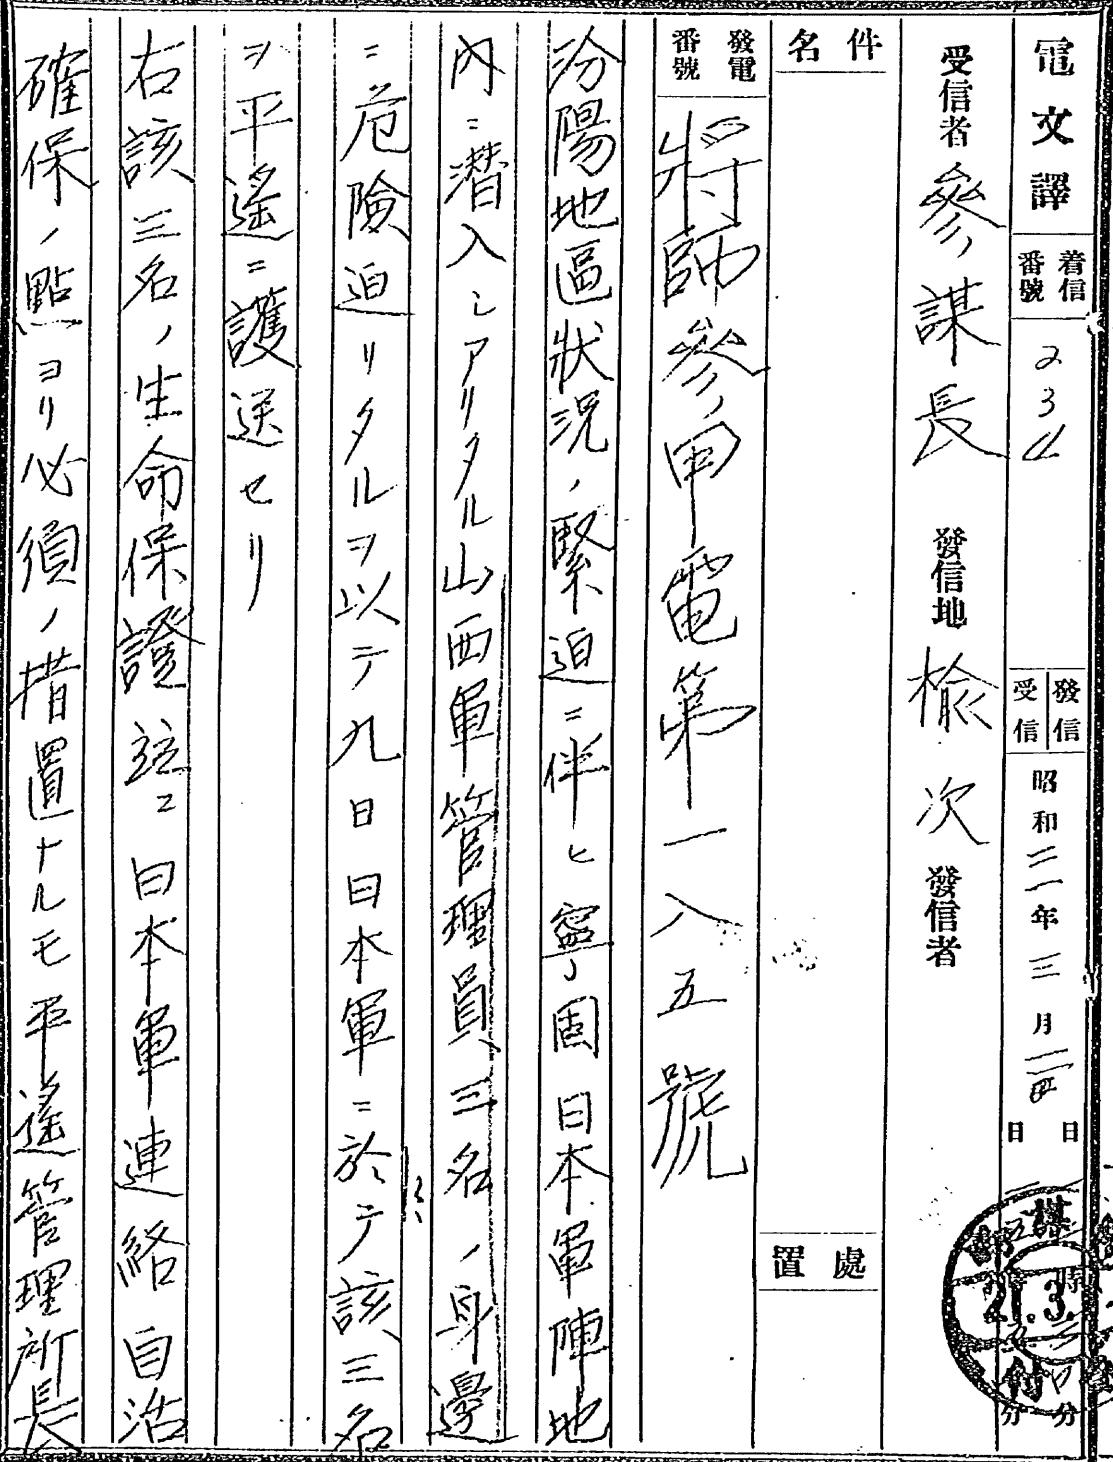 電文譯 着信番號 234 發信 受信 昭和二一年三月一四日 日
受信者 參謀長 發信地 楡次 發信者
件名 處置
發電番號 將帥參甲電第一八五號
汾陽地區狀況ノ緊迫ニ伴ヒ寧固日本軍陣地
內ニ潛入シアリタル山西軍管理員三名ノ身邊
ニ危險迫リタルヲ以テ九日日本軍ニ於テ該三名
ヲ平遙ニ護送セリ
右該三名ノ生命保證竝ニ日本軍連絡自活
確保ノ點ヨリ必須ノ措置ナルモ平遙管理所長